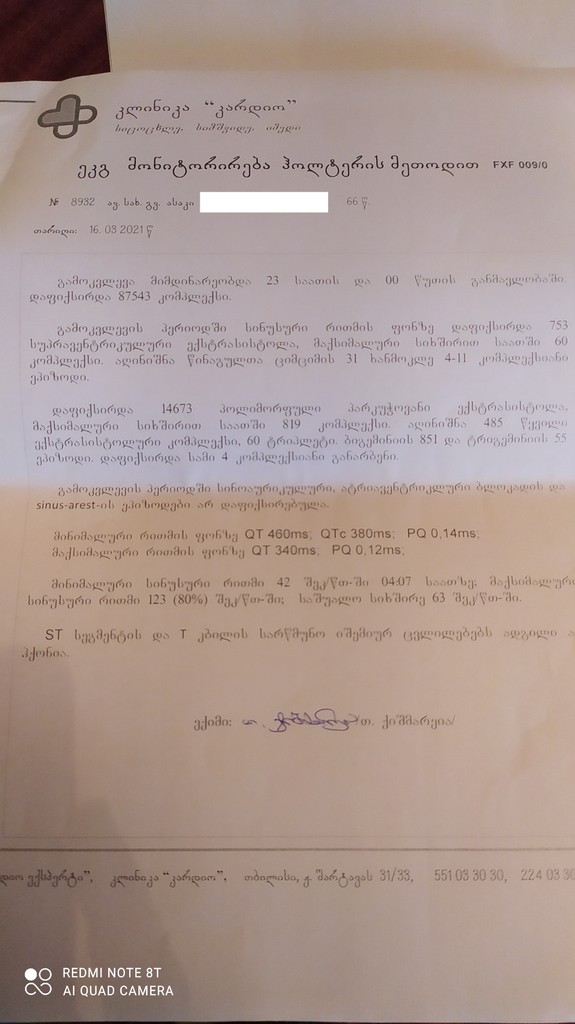 კლინიკა “კარდიო”
სიცოცხლე. სიმშვიდე. იმედი
ეკგ მონიტორირება ჰოლტერის მეთოდით FXF 009/0
№ 8932 ავ. სახ. გვ. ასაკი 66 წ.
თარიღი: 16. 03 2021 წ
გამოკვლევა მიმდინარეობდა 23 საათის და 00 წუთის განმავლობაში.
დაფიქსირდა 87543 კომპლექსი.
გამოკვლევის პერიოდში სინუსური რითმის ფონზე დაფიქსირდა 753
სუპრავენტრიკულური ექსტრასისტოლა, მაქსიმალური სიხშირით საათში 60
კომპლექსი. აღინიშნა წინაგულთა ციმციმის 31 ხანმოკლე 4-11 კომპლექსიანი
ეპიზოდი.
დაფიქსირდა 14673 პოლიმორფული პარკუჭოვანი ექსტრასისტოლა,
მაქსიმალური სიხშირით საათში 819 კომპლექსი. აღინიშნა 485 წყვილი
ექსტრასისტოლური კომპლექსი, 60 ტრიპლეტი. ბიგემინიის 851 და ტრიგემინიის 55
ეპიზოდი. დაფიქსირდა სამი 4 კომპლექსიანი განარბენი.
გამოკვლევის პერიოდში სინოაურიკულური, ატრიავენტრიკლური ბლოკადის და
sinus-arest-ის ეპიზოდები არ დაფიქსირებულა.
მინიმალური რითმის ფონზე QT 460ms; QTc 380ms; PQ 0,14ms;
მაქსიმალური რითმის ფონზე QT 340ms; PQ 0,12ms;
მინიმალური სინუსური რითმი 42 შეკ/წთ-ში 04:07 საათზე; მაქსიმალური
სინუსური რითმი 123 (80%) შეკ/წთ-ში; საშუალო სიხშირე 63 შეკ/წთ-ში.
ST სეგმენტის და T კბილის სარწმუნო იშემიურ ცვლილებებს ადგილი ა
ჰქონია.
ექიმი: /თ. ქიშმარეია/
დიო ექსპერტი”, კლინიკა “კარდიო”, თბილისი, ჟ. შარტავას 31/33, 551 03 30 30, 224 03 30
REDMI NOTE 8T
AI QUAD CAMERA